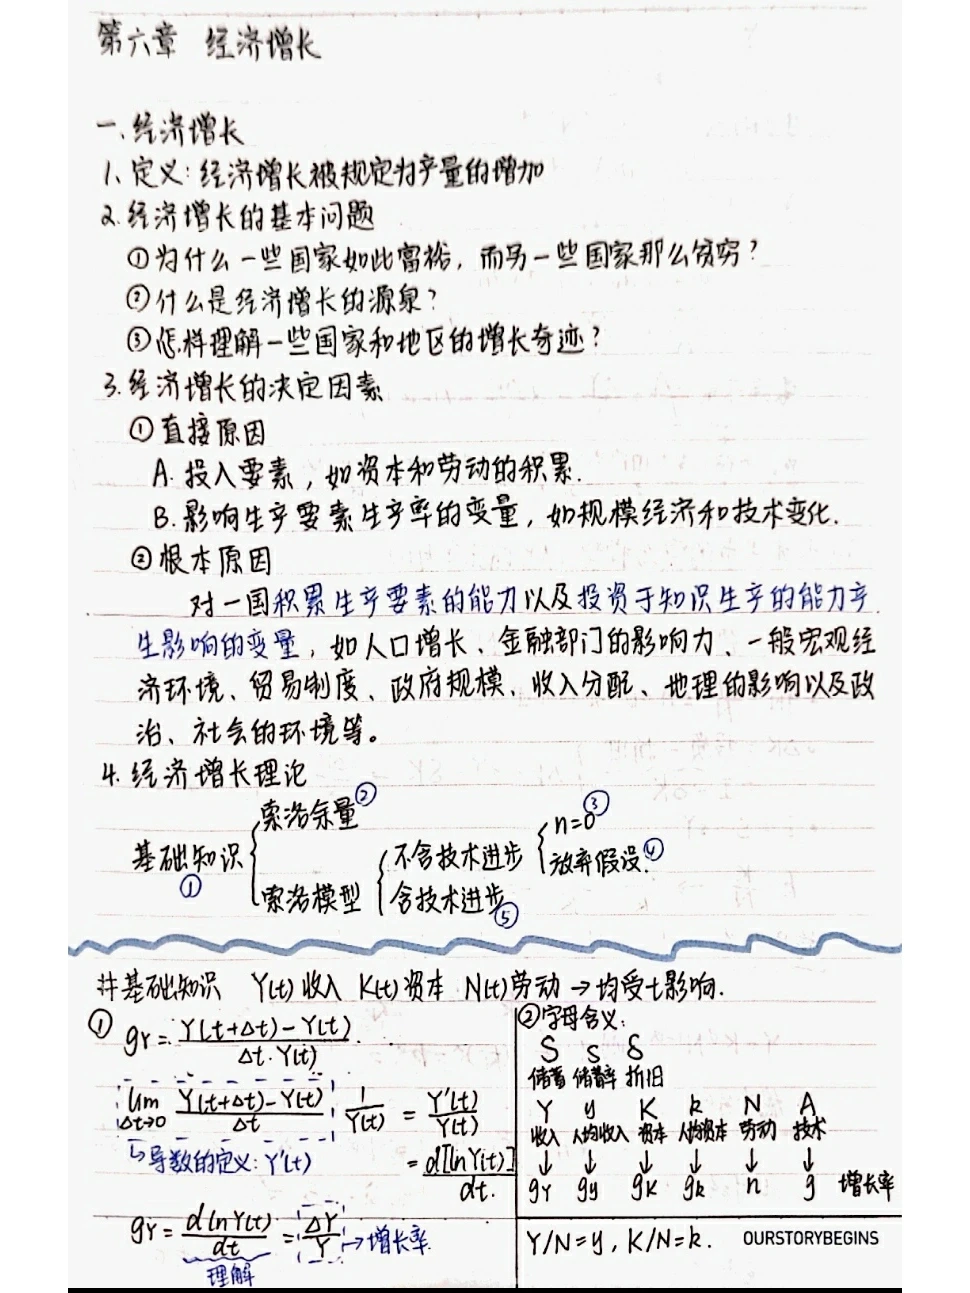 第六章 经济增长
一、经济增长
1、定义：经济增长被规定为产量的增加
2.经济增长的基本问题
①为什么一些国家如此富裕，而另一些国家那么贫穷？
②什么是经济增长的源泉？
③怎样理解一些国家和地区的增长奇迹？
3.经济增长的决定因素
①直接原因
A.投入要素，如资本和劳动的积累.
B.影响生产要素生产率的变量，如规模经济和技术变化.
②根本原因
对一国积累生产要素的能力以及投资于知识生产的能力产
生影响的变量，如人口增长、金融部门的影响力、一般宏观经
济环境、贸易制度、政府规模、收入分配、地理的影响以及政
治、社会的环境等。
4.经济增长理论
索洛余量②
n=0③
基础知识①
不含技术进步
放弃假设.④
索洛模型
含技术进步⑤
#基础知识 Y(t)收入 K(t)资本 N(t)劳动→均受t影响.
① gY = Y(t+Δt)-Y(t) / Δt·Y(t)
lim Δt→0 Y(t+Δt)-Y(t) / Δt · 1/Y(t) = Y'(t)/Y(t)
↳导数的定义：Y'(t)
= d[lnY(t)] / dt.
gY = dlnY(t)/dt = ΔY/Y →增长率
理解
②字母含义：
S s δ
储蓄 储蓄率 折旧
Y y K k N A
收入 人均收入 资本 人均资本 劳动 技术
↓ ↓ ↓ ↓ ↓ ↓
gY gy gK gk n g 增长率
Y/N=y, K/N=k.
OURSTORYBEGINS